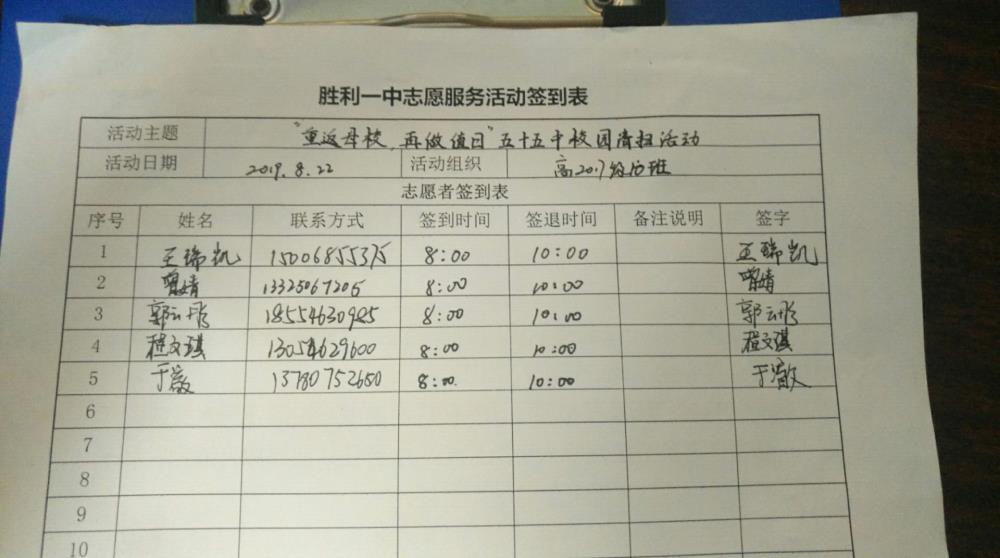 胜利一中志愿服务活动签到表
活动主题 "重返母校,再做值日"五十五中校园清扫活动
活动日期 2019.8.22 活动组织 高2017级 班
志愿者签到表
序号 姓名 联系方式 签到时间 签退时间 备注说明 签字
1 王瑞凯 15006855375 8:00 10:00 王瑞凯
2 曾婧 13325067205 8:00 10:00 曾婧
3 郭云彤 18554630925 8:00 10:00 郭云彤
4 程文琪 13054629600 8:00 10:00 程文琪
5 于 13780752680 8:00 10:00 于
6
7
8
9
10